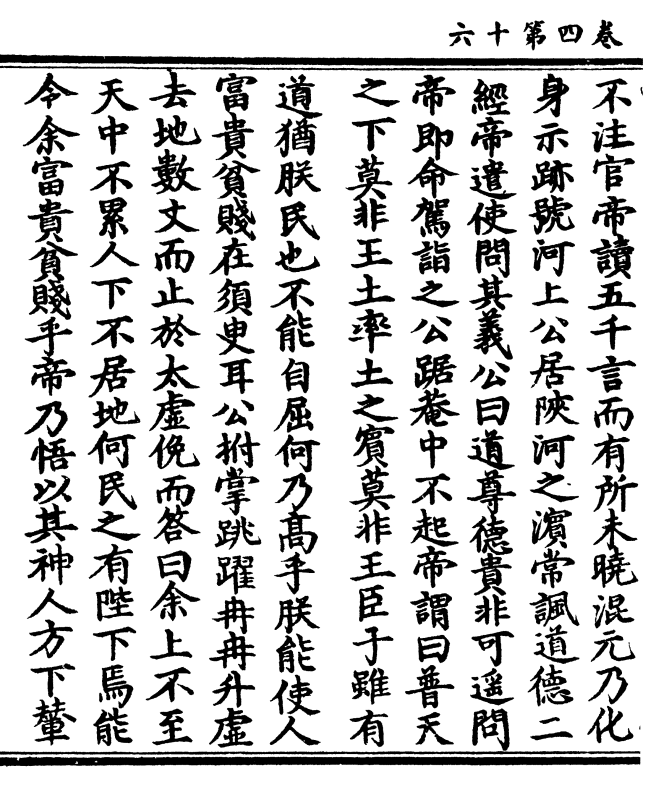 卷四第十六
不注官帝讀五千言而有所未曉混元乃化
身示跡號河上公居陝河之濵常諷道德二
經帝遣使問其義公曰道尊德貴非可遥問
帝即命駕詣之公踞菴中不起帝謂曰普天
之下莫非王土率土之賔莫非王臣子雖有
道猶朕民也不能自屈何乃髙乎朕能使人
富貴貧賤在須臾耳公拊掌跳躍冉冉升虛
去地數丈而止於太虛俛而答曰余上不至
天中不累人下不居地何民之有陛下焉能
令余富貴貧賤乎帝乃悟以其神人方下輦